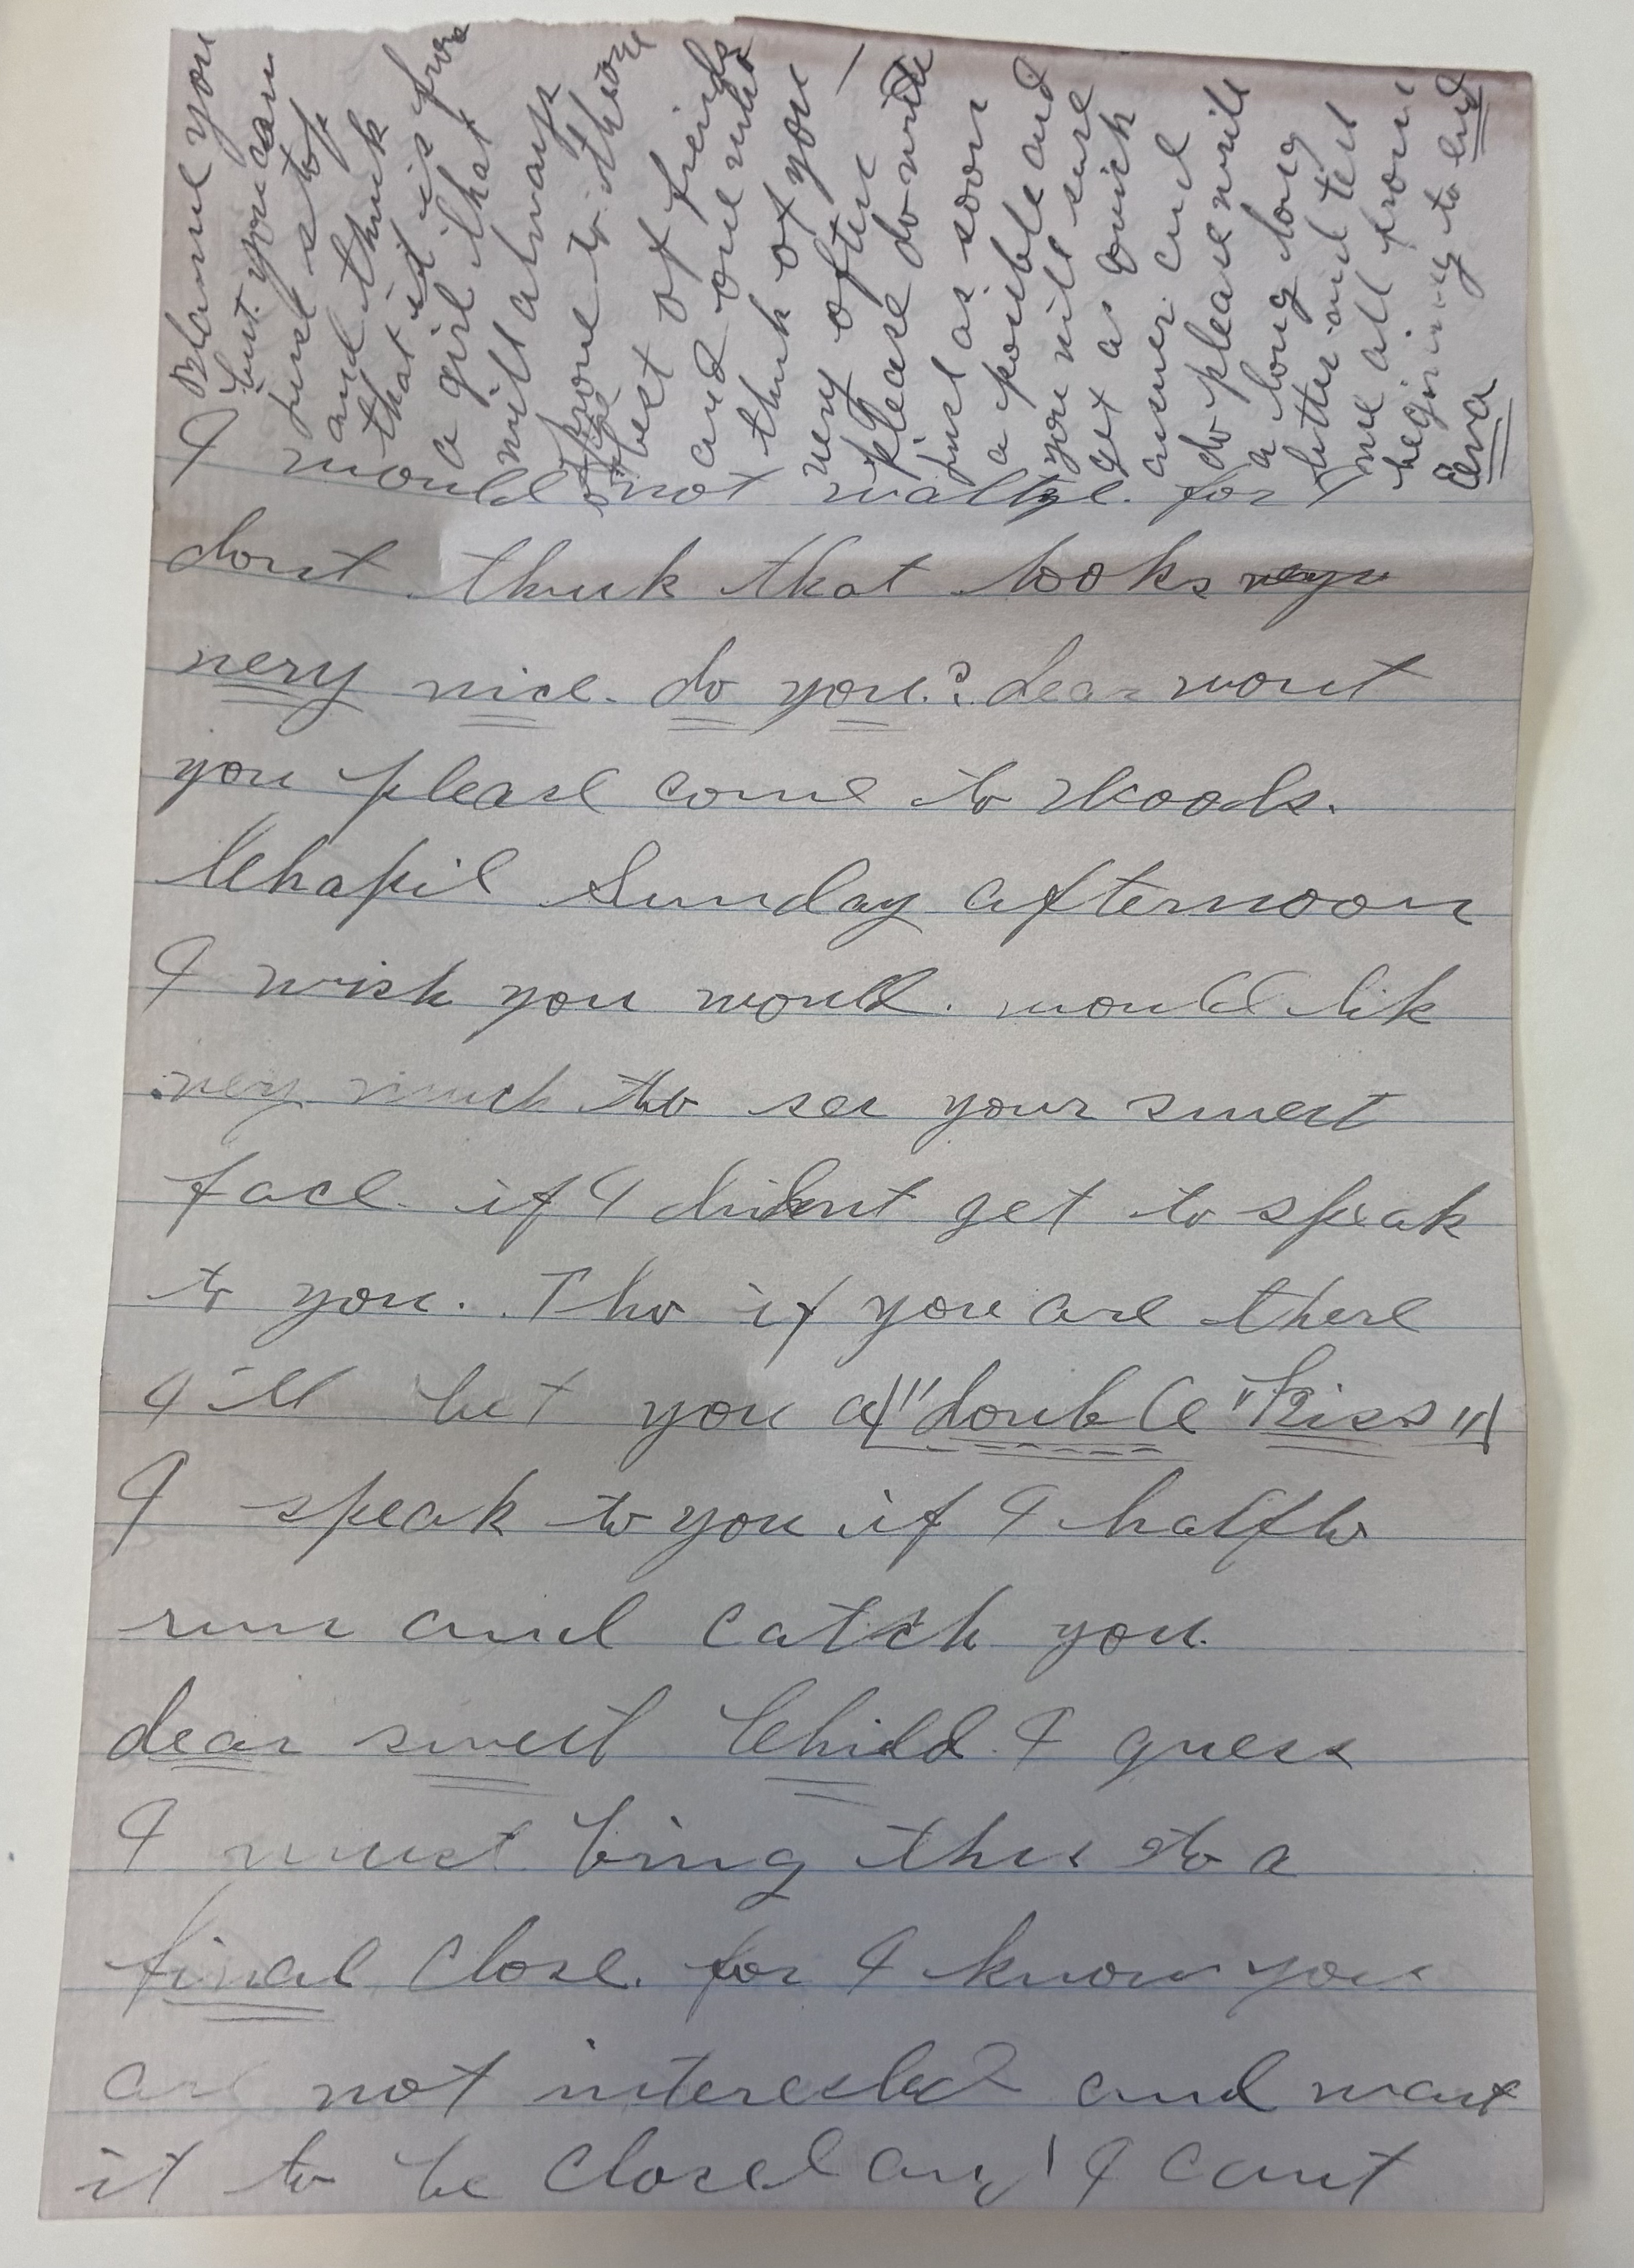 I would not waltze. for I
dont think that looks very
very nice. do you? dear wont
you please come to Woods.
Chapil Sunday afternoon
I wish you would. would lik
very much to see your sweet
face. if I dident get to speak
to you. Tho if you are there
I'll bet you a ("double "Kiss")
I speak to you if I halfto
run and catch you.
dear sweet Child I guess
I must bring this to a
final close. for I know you
are not interested and want
it to be closed and I cant
Blame you
but you can
just stop
and think
that it is from
a girl that
will always
prove to
best of freinds
and one who
think of you –
very often
Please do write
just as soon
a posible and
you will sure
get as quick
answer. and
do please write
a long long
letter and tell
me all from
begining to end
Eva